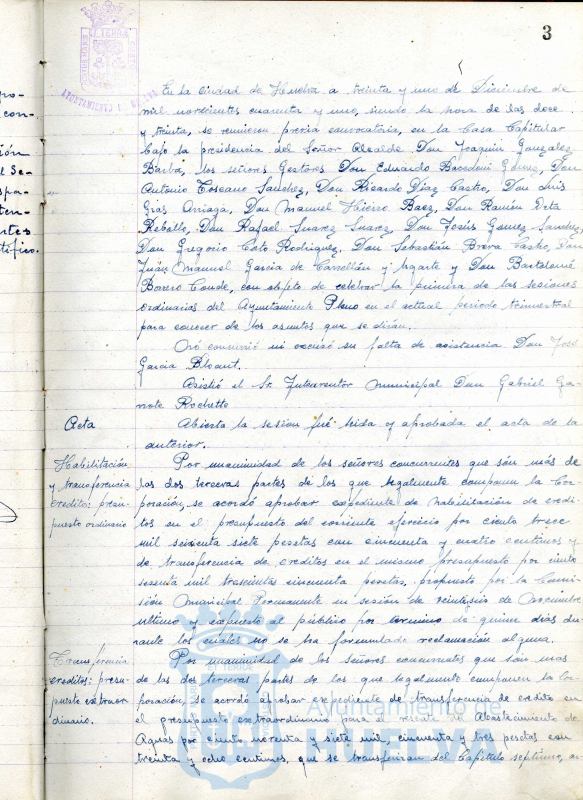 3
En la Ciudad de Huelva a treinta y uno de Diciembre de
mil novecientos cuarenta y uno, siendo la hora de las doce
y treinta, se reunieron previa convocatoria, en la Casa Capitular
bajo la presidencia del Señor Alcalde Don Joaquin Gonzalez
Barba, los señores Gestores Don Eduardo Gomez, Don
Antonio Toscano Sanchez, Don Ricardo Diaz Castro, Don Luis
Gras Arriaga, Don Manuel Hierro Baez, Don Ramón Veta
Rebollo, Don Rafael Suarez Suarez, Don Jesús Gomez Sanchez,
Don Gregorio Coto Rodriguez, Don Sebastián Don
Juán Manuel Garcia de y Ugarte y Don Bartolomé
Borrero Conde, con objeto de celebrar la primera de las sesiones
ordinarias del Ayuntamiento Pleno en el actual periodo trimestral
para conocer de los asuntos que se dirán.
No concurrió ni excusó su falta de asistencia Don José
Garcia
Asistió el Sr. Interventor Municipal Don Gabriel Ga-
rrote Rochette
Acta
Abierta la sesión fué leida y aprobada el acta de la
anterior.
Habilitación
y transferencia
credito: presu-
puesto ordinario
Por unanimidad de los señores concurrentes que són más de
las dos terceras partes de los que legalmente componen la Cor-
poración, se acordó aprobar expediente de habilitación de credi-
tos en el presupuesto del corriente ejercicio por ciento trece
mil sesenta siete pesetas con cincuenta y cuatro centimos y
de transferencia de creditos en el mismo presupuesto por ciento
sesenta mil trescientas cincuenta pesetas, propuesto por la Comi-
sión Municipal Permanente en sesión de veintiseis de Noviembre
ultimo y expuesto al público por termino de quince dias du-
rante los cuales no se ha formulado reclamación alguna.
Transferencia
creditos: presu-
puesto extraor-
dinario.
Por unanimidad de los señores concurrentes que són más
de las dos terceras partes de los que legalmente componen la Cor-
poración, se acordó aprobar expediente de transferencia de credito en
el presupuesto extraordinario para el rescate del Abastecimiento de
Aguas por ciento noventa y siete mil, cincuenta y tres pesetas con
treinta y ocho centimos, que se transfieren del Capitulo septimo, ar-
Ayuntamiento de
HUELVA